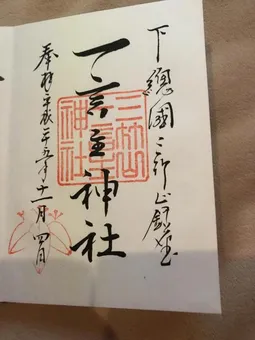 下總國三竹山鎮座
一言主神社
三竹山
神社
奉拝 平成二十五年十一月四日